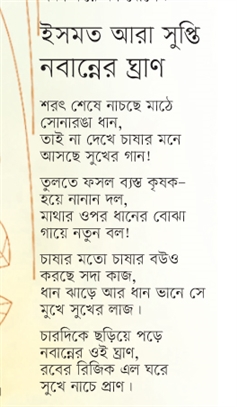 ইসমত আরা সুপ্তি
নবান্নের ঘ্রাণ
শরৎ শেষে নাচছে মাঠে
সোনারঙা ধান,
তাই না দেখে চাষার মনে
আসছে সুখের গান!
তুলতে ফসল ব্যস্ত কৃষক–
হয়ে নানান দল,
মাথার ওপর ধানের বোঝা
গায়ে নতুন বল!
চাষার মতো চাষার বউও
করছে সদা কাজ,
ধান ঝাড়ে আর ধান ভানে সে
মুখে সুখের লাজ।
চারদিকে ছড়িয়ে পড়ে
নবান্নের ওই ঘ্রাণ,
রবের রিজিক এল ঘরে
সুখে নাচে প্রাণ।